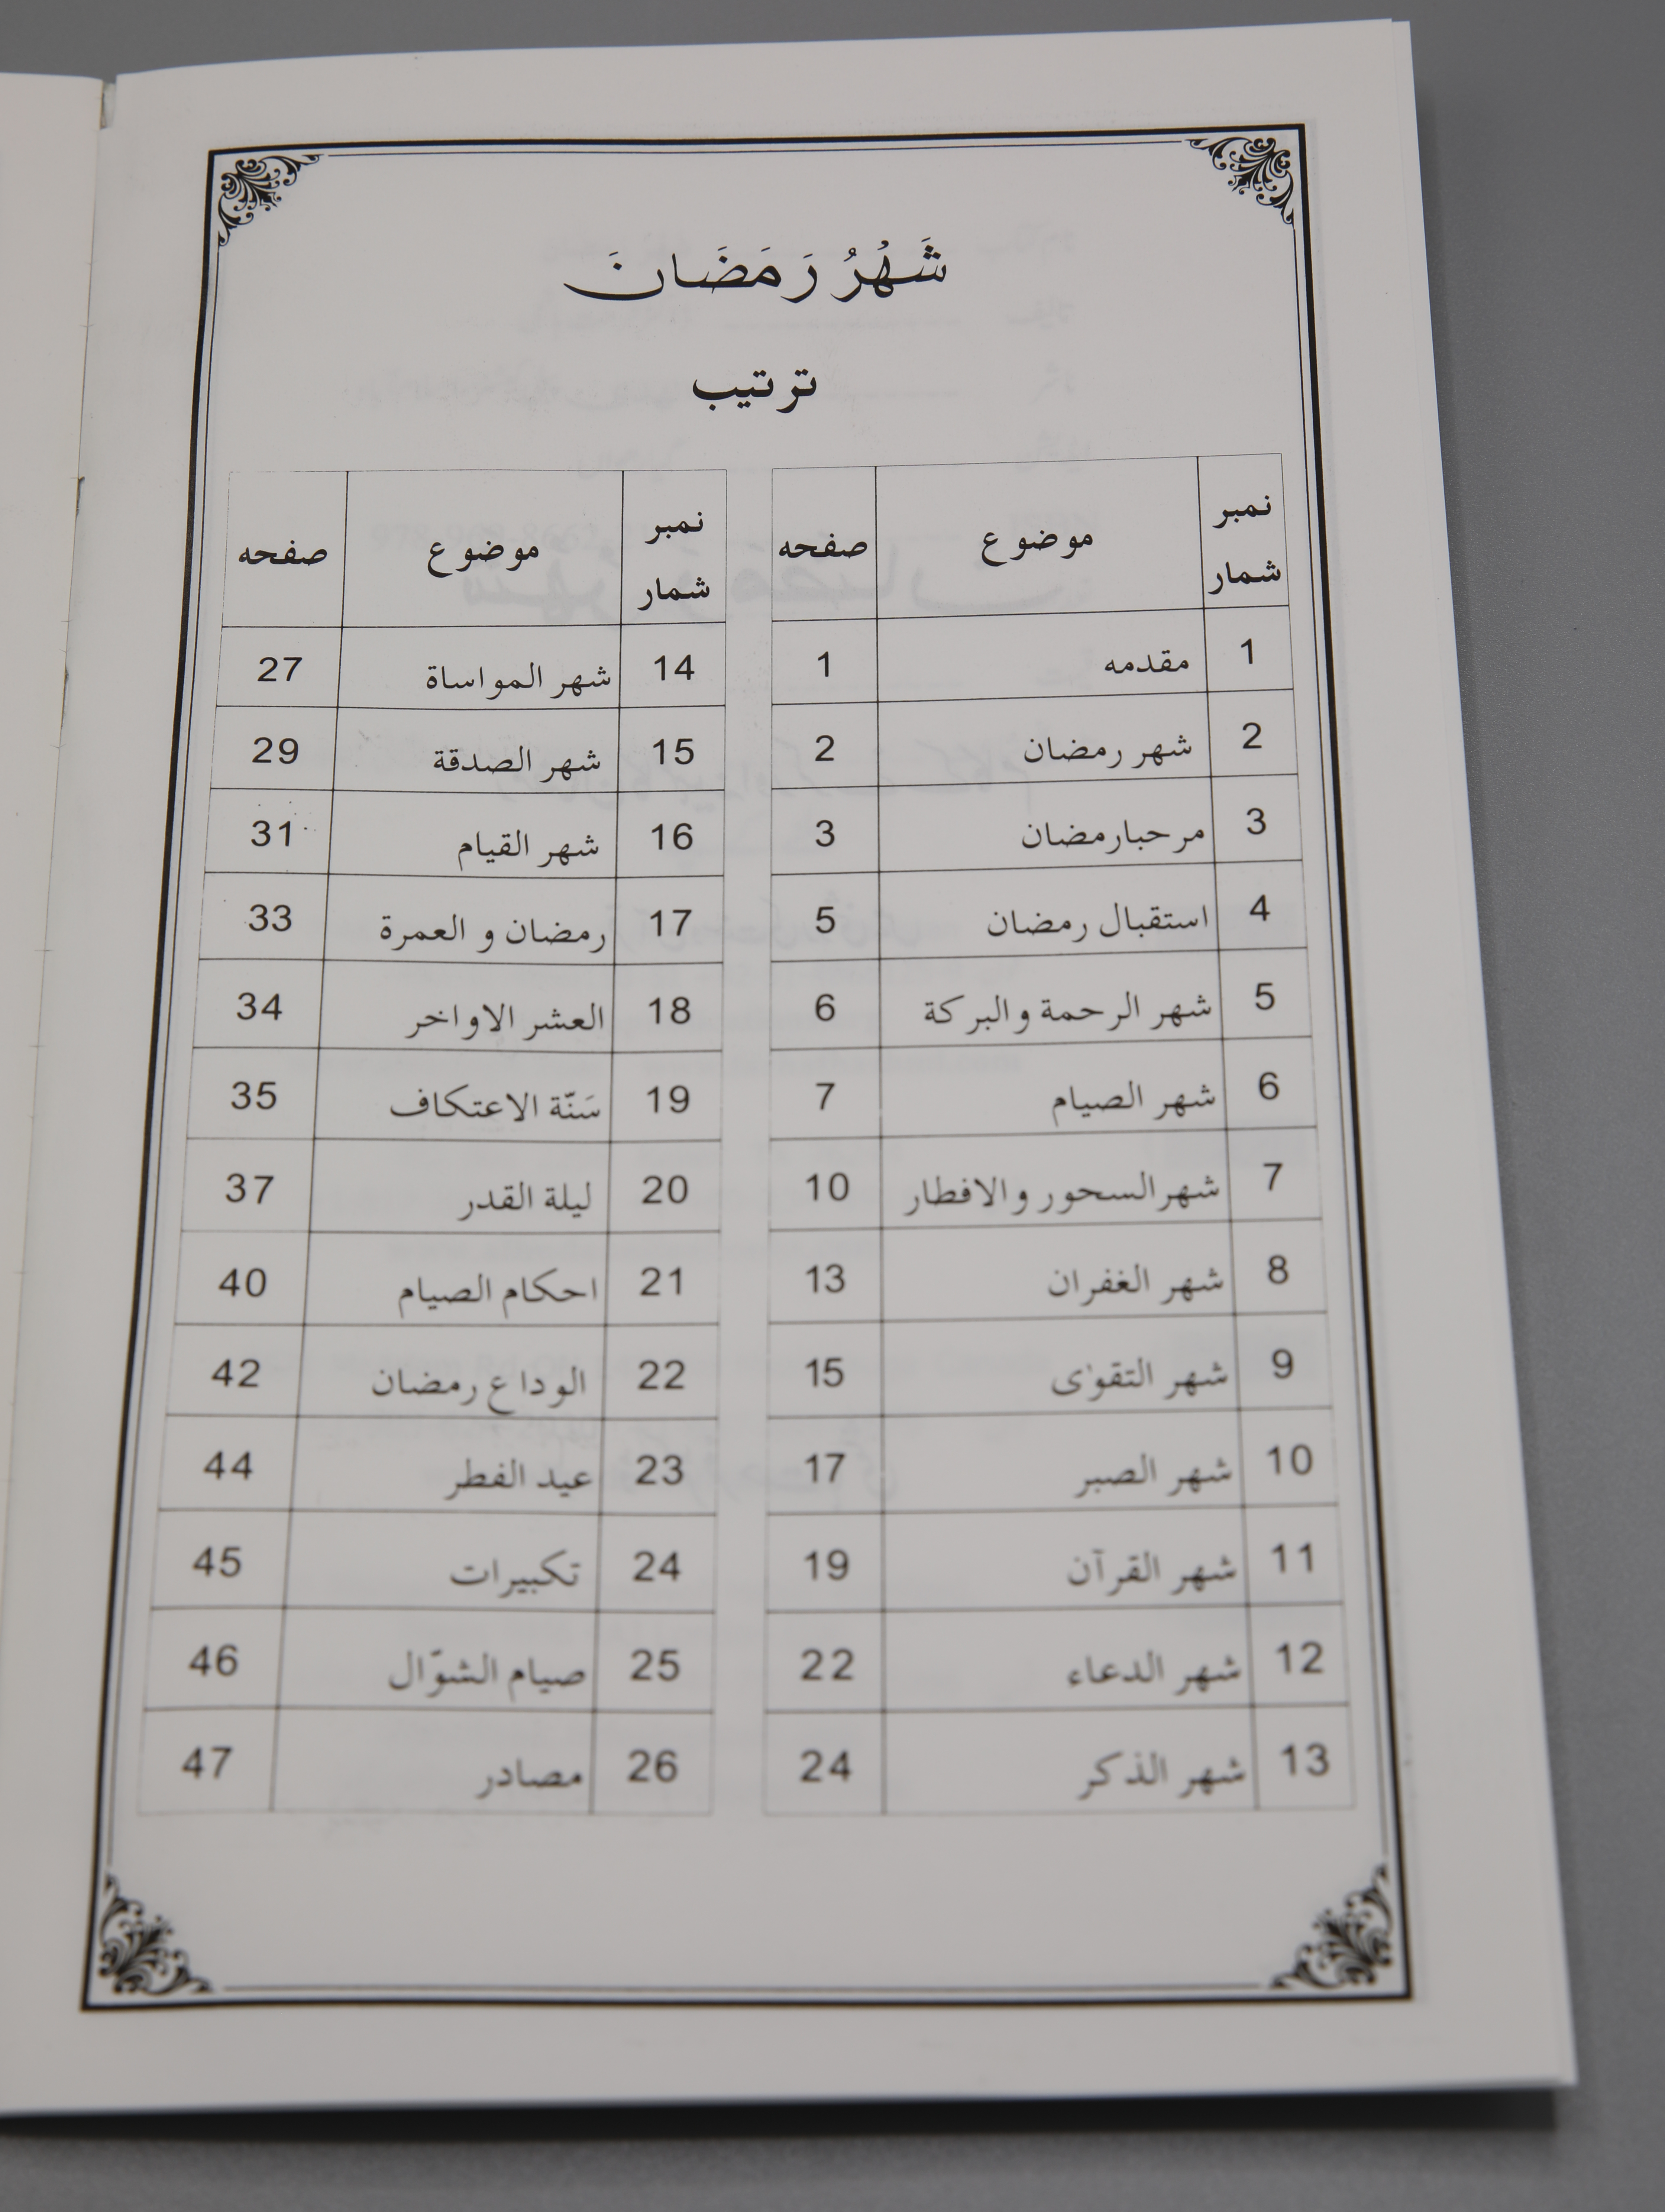 شَهْرُ رَمَضَانَ
ترتيب
نمبر شمار موضوع صفحه
1 مقدمه 1
2 شهر رمضان 2
3 مرحبارمضان 3
4 استقبال رمضان 5
5 شهر الرحمة والبركة 6
6 شهر الصيام 7
7 شهرالسحور والافطار 10
8 شهر الغفران 13
9 شهر التقوٰى 15
10 شهر الصبر 17
11 شهر القرآن 19
12 شهر الدعاء 22
13 شهر الذكر 24
نمبر شمار موضوع صفحه
14 شهر المواساة 27
15 شهر الصدقة 29
16 شهر القيام 31
17 رمضان و العمرة 33
18 العشر الاواخر 34
19 سَنّة الاعتكاف 35
20 ليلة القدر 37
21 احكام الصيام 40
22 الوداع رمضان 42
23 عيد الفطر 44
24 تكبيرات 45
25 صيام الشوّال 46
26 مصادر 47